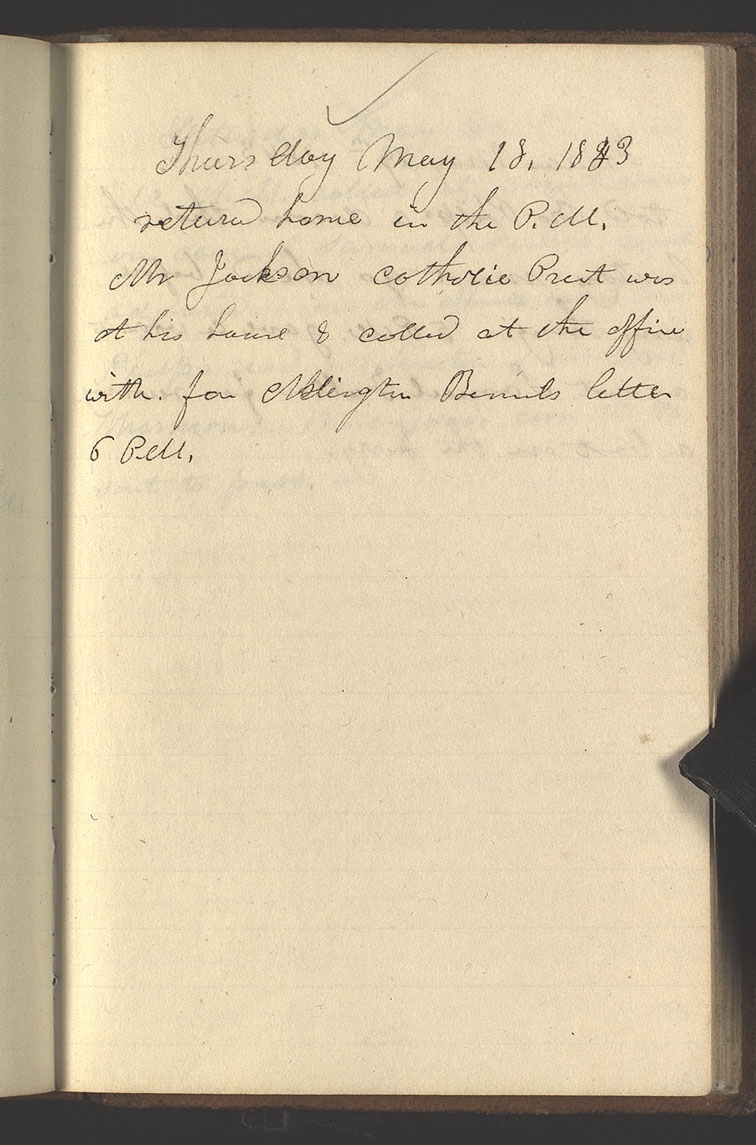 Thursday May 18, 1843
return home in the P.M.
Mr Jackson Catholic Preist was
at his house & called at the office
with. for Arlington Bennets letter
6 P.M.